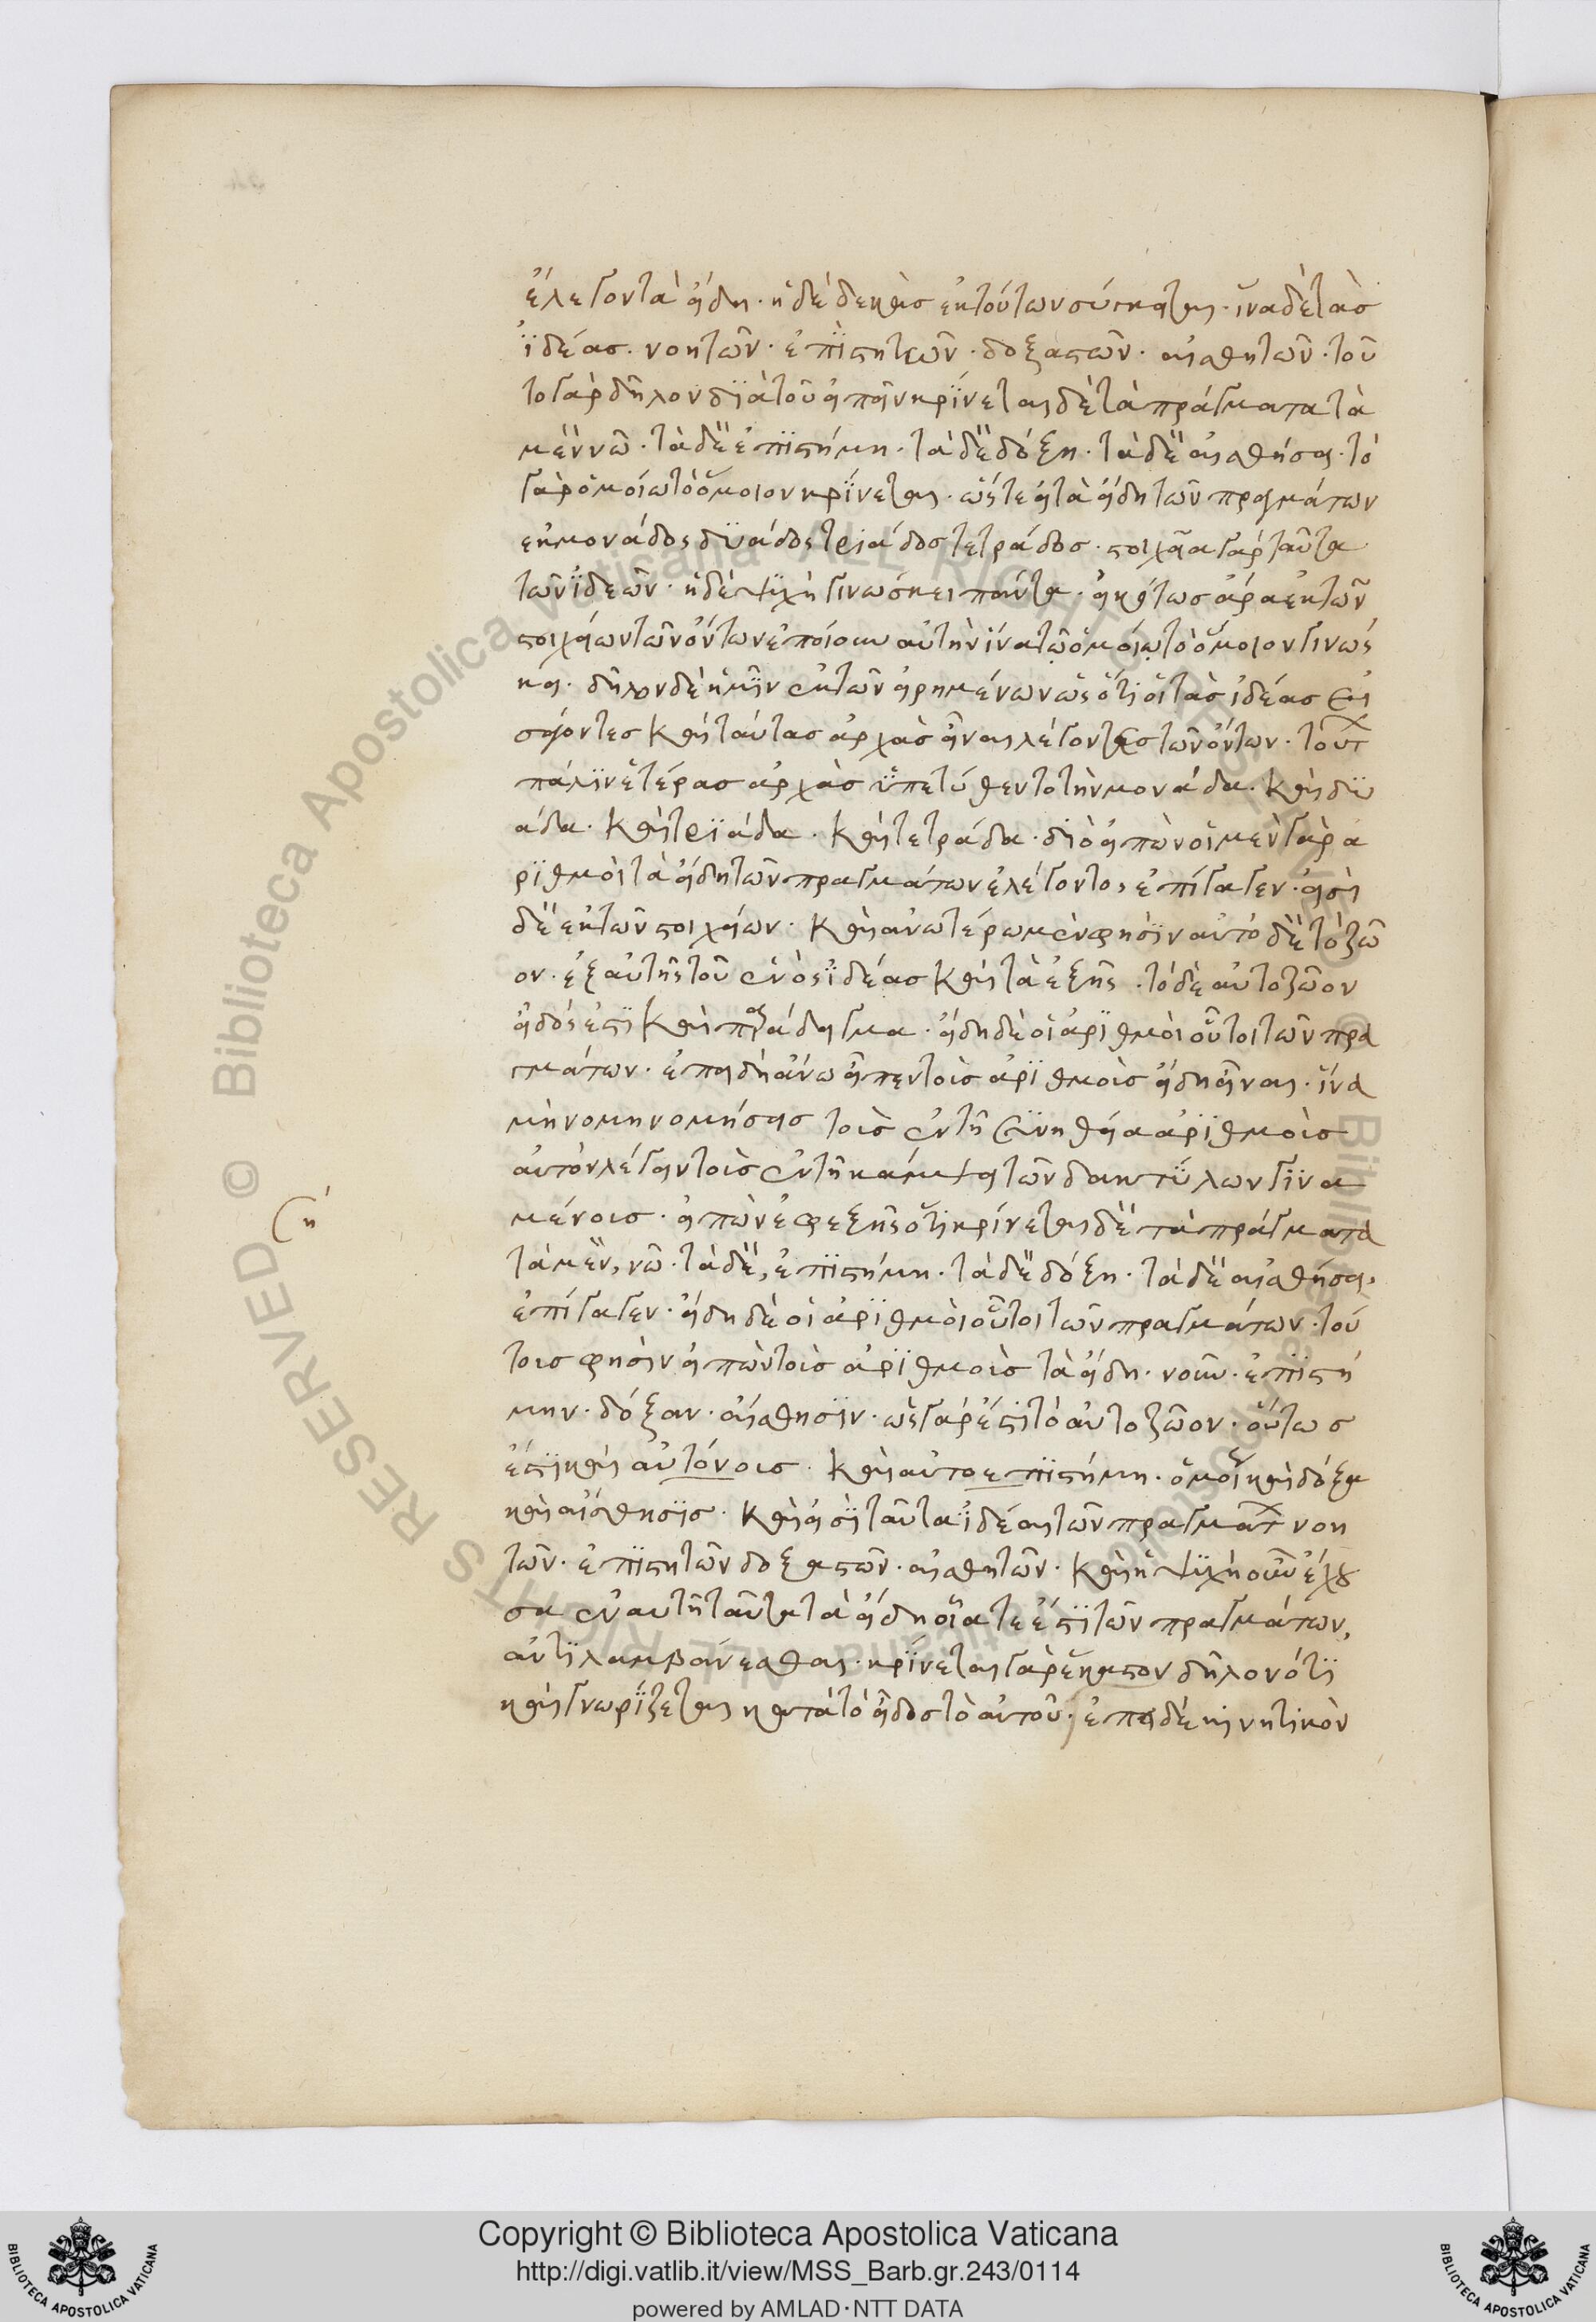 ἔλεγον τὰ εἴδη· ἡ δὲ δεκὰς ἐκ τούτων σύγκειται· ἵνα δὲ τὰς
ϊδέας· νοητῶν· ἐπϊστητῶν· δοξαστῶν· αἰσθητῶν· τοῦ
το γὰρ δῆλον δϊὰ τοῦ εἰπεῖν κρϊνεται δὲ τὰ πράγματα τὰ
μὲν νῶ· τὰ δὲ ἐπϊστήμη· τὰ δὲ δόξη· τὰ δὲ αἰσθήσει· τὸ
γὰρ ὁμοίω τὸ ὅμοιον κρϊνεται· ὥστε εἰ τὰ εἴδη τῶν πραγμάτων
ἐκ μονάδος δϋάδος τριάδος τετράδος· στοιχεῖα γὰρ ταῦτα
τῶν ϊδεῶν· ἡ δὲ ψϋχὴ γινώσκει πάντα· εἰκότως ἄρα ἐκ τῶν
στοιχείων τῶν ὄντων ἐποίουν αὐτὴν ἵνα τῷ ὁμοίῳ τὸ ὅμοιον γινώσ
κει· δῆλον δὲ ἡμῖν ἐκ τῶν εἰρημένων ὡς ὅτι οἱ τὰς ἰδέας εἰ
σάγοντες καὶ ταύτας ἀρχὰς εἶναι λέγοντες τῶν ὄντων· τούτ
πάλϊν ἑτέρας ἀρχὰς ϋπετύθεντο τὴν μονάδα· καὶ δϋ
άδα· καὶ τρϊάδα· καὶ τετράδα· δϊὸ εἰπὼν οἱ μὲν γὰρ ἀ
ρϊθμοὶ τὰ εἴδη τῶν πραγμάτων ἐλέγοντο, ἐπήγαγεν· εἰσὶ
δὲ ἐκ τῶν στοιχείων· καὶ ἀνωτέρω μὲν φησϊν αὐτὸ δὲ τὸ ζῶ
ον· ἐξ αὐτῆς τοῦ ἑνὸς ϊδέας καὶ τὰ ἑξῆς· τὸ δὲ αὐτοζῶον
εἶδός ἐστϊ καὶ παράδειγμα· εἴδη δὲ οἱ ἀρϊθμοὶ οὗτοι τῶν πρα
γμάτων· ἐπειδὴ ἄνω εἶπεν τοῖς ἀρϊθμοῖς εἴδη εἶναι· ἵνα
μὴ νομηνομήσεις τοῖς ἐν τῇ σϋνηθεία ἀρϊθμοῖς
αὐτὸν λέγειν τοῖς ἐν τῇ κάμψει τῶν δακτϋλων γϊνα
μένοις· εἰπὼν ἐφεξῆς ὅτι κρίνεται δὲ τὰ πράγματα
τὰ μὲν, νῶ· τὰ δὲ, ἐπϊστήμη· τὰ δὲ δόξη· τὰ δὲ αἰσθήσει,
ἐπήγαγεν· εἴδη δὲ οἱ ἀρϊθμοὶ οὗτοι τῶν πραγμάτων· τού
τοις φησὶν εἰπὼν τοῖς ἀρϊθμοῖς τὰ εἴδη· νοῦν· ἐπϊστή
μην· δόξαν· αἴσθησϊν· ὡς γὰρ ἐστὶ τὸ αὐτοζῶον· οὕτως
ἐστϊ καὶ αὐτόνοις· καὶ αὐτοεπϊστήμη· ὁμοῖ καὶ δόξα
καὶ αἴσθησϊς· καὶ εἰσϊ ταῦτα ϊδέαι τῶν πραγματ νοη
τῶν· ἐπϊστητῶν δοξαστῶν· αἰσθητῶν· καὶ ἡ ψϋχὴ οὖν ἔχου
σα ἐν αὐτῇ ταῦτα τὰ εἴδη οἵα τε ἐστϊ τῶν πραγμάτων,
ἀντϊλαμβάνεσθαι· κρϊνεται γὰρ ἕκαστον δῆλον ὅτϊ
καὶ γνωρϊζεται κατὰ τὸ εἶδος τὸ αὐτοῦ· ἐπεὶ δὲ κϊνητικὸν